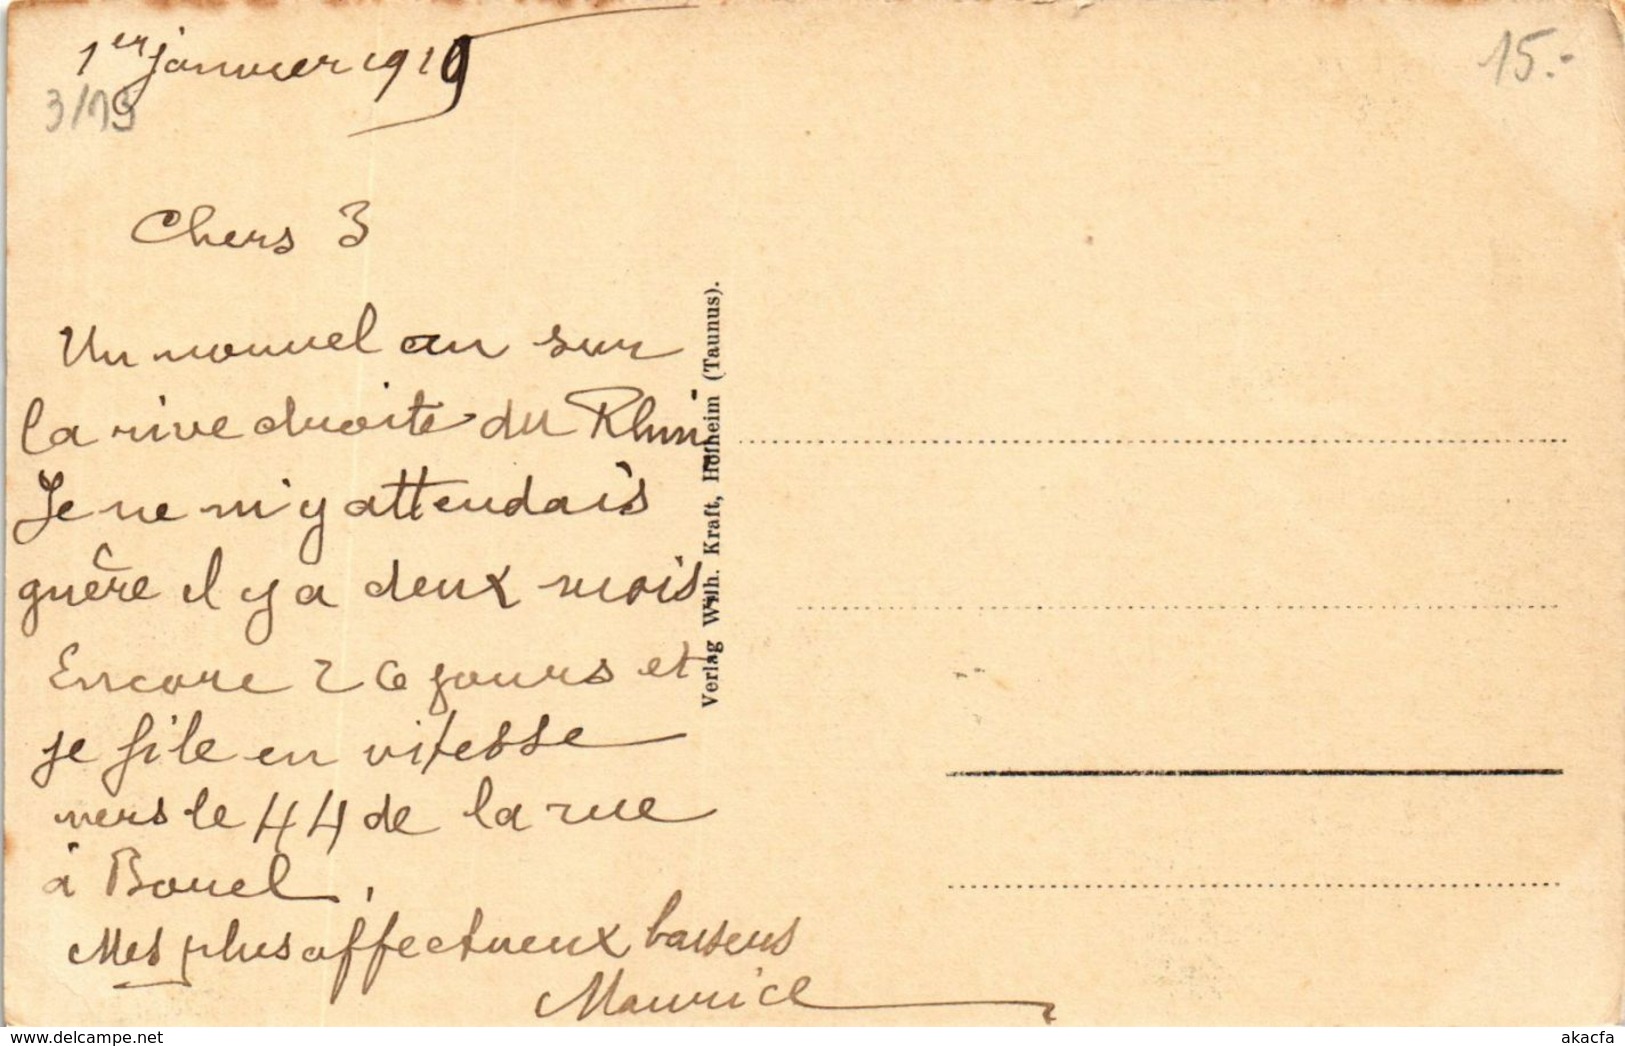 1er janvier 1919
3/19
15.-
Chers 3
Un nouvel an sur
la rive droite du Rhin
Je ne m'y attendais
guère il y a deux mois
Encore 26 jours et
je file en vitesse
vers le 44 de la rue
à Bouel.
Mes plus affectueux baisers
Maurice
Verlag Wilh. Kraft, Hofheim (Taunus).
akacfa
https://www.delcampe.net